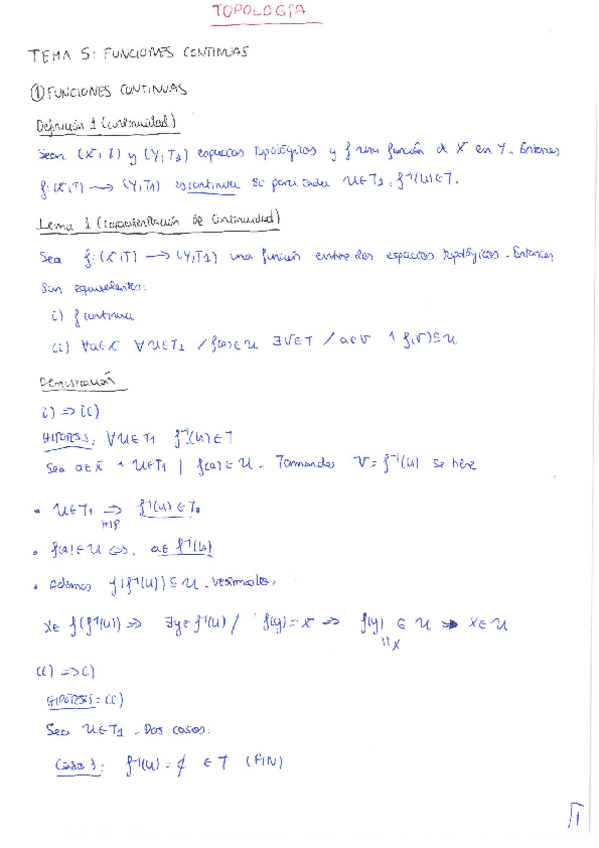 TOPOLOGÍA
TEMA 5: FUNCIONES CONTINUAS
① FUNCIONES CONTINUAS
Definición 1 (continuidad)
Sean (X,T) y (Y,T1) espacios topológicos y f una función d X en Y. Entonces
f:(X,T) → (Y,T1) es continua si para cada U∈T1, f⁻¹(U)∈T.
Lema 1 (caracterización de continuidad)
Sea f:(X,T) → (Y,T1) una función entre dos espacios topológicos. Entonces
son equivalentes:
i) f continua
ii) ∀a∈X ∀U∈T1 / f(a)∈U ∃V∈T / a∈V ^ f(V)⊆U
Demostración
i) ⇒ ii)
HIPOTESIS: ∀U∈T1 f⁻¹(U)∈T
Sea a∈X ^ U∈T1 | f(a)∈U. Tomando V=f⁻¹(U) se tiene
• U∈T1 ⇒ f⁻¹(U)∈T.
HIP
• f(a)∈U ⇔ a∈f⁻¹(U)
• Además f(f⁻¹(U))⊆U. Veámoslo.
X∈f(f⁻¹(U)) ⇒ ∃y∈f⁻¹(U) / f(y)=x ⇒ f(y)∈U ⇒ x∈U
11
X
ii) ⇒ i)
HIPOTESIS: ii)
Sea U∈T1. Dos casos.
Caso 1: f⁻¹(U)=∅ ∈T (FIN)
1